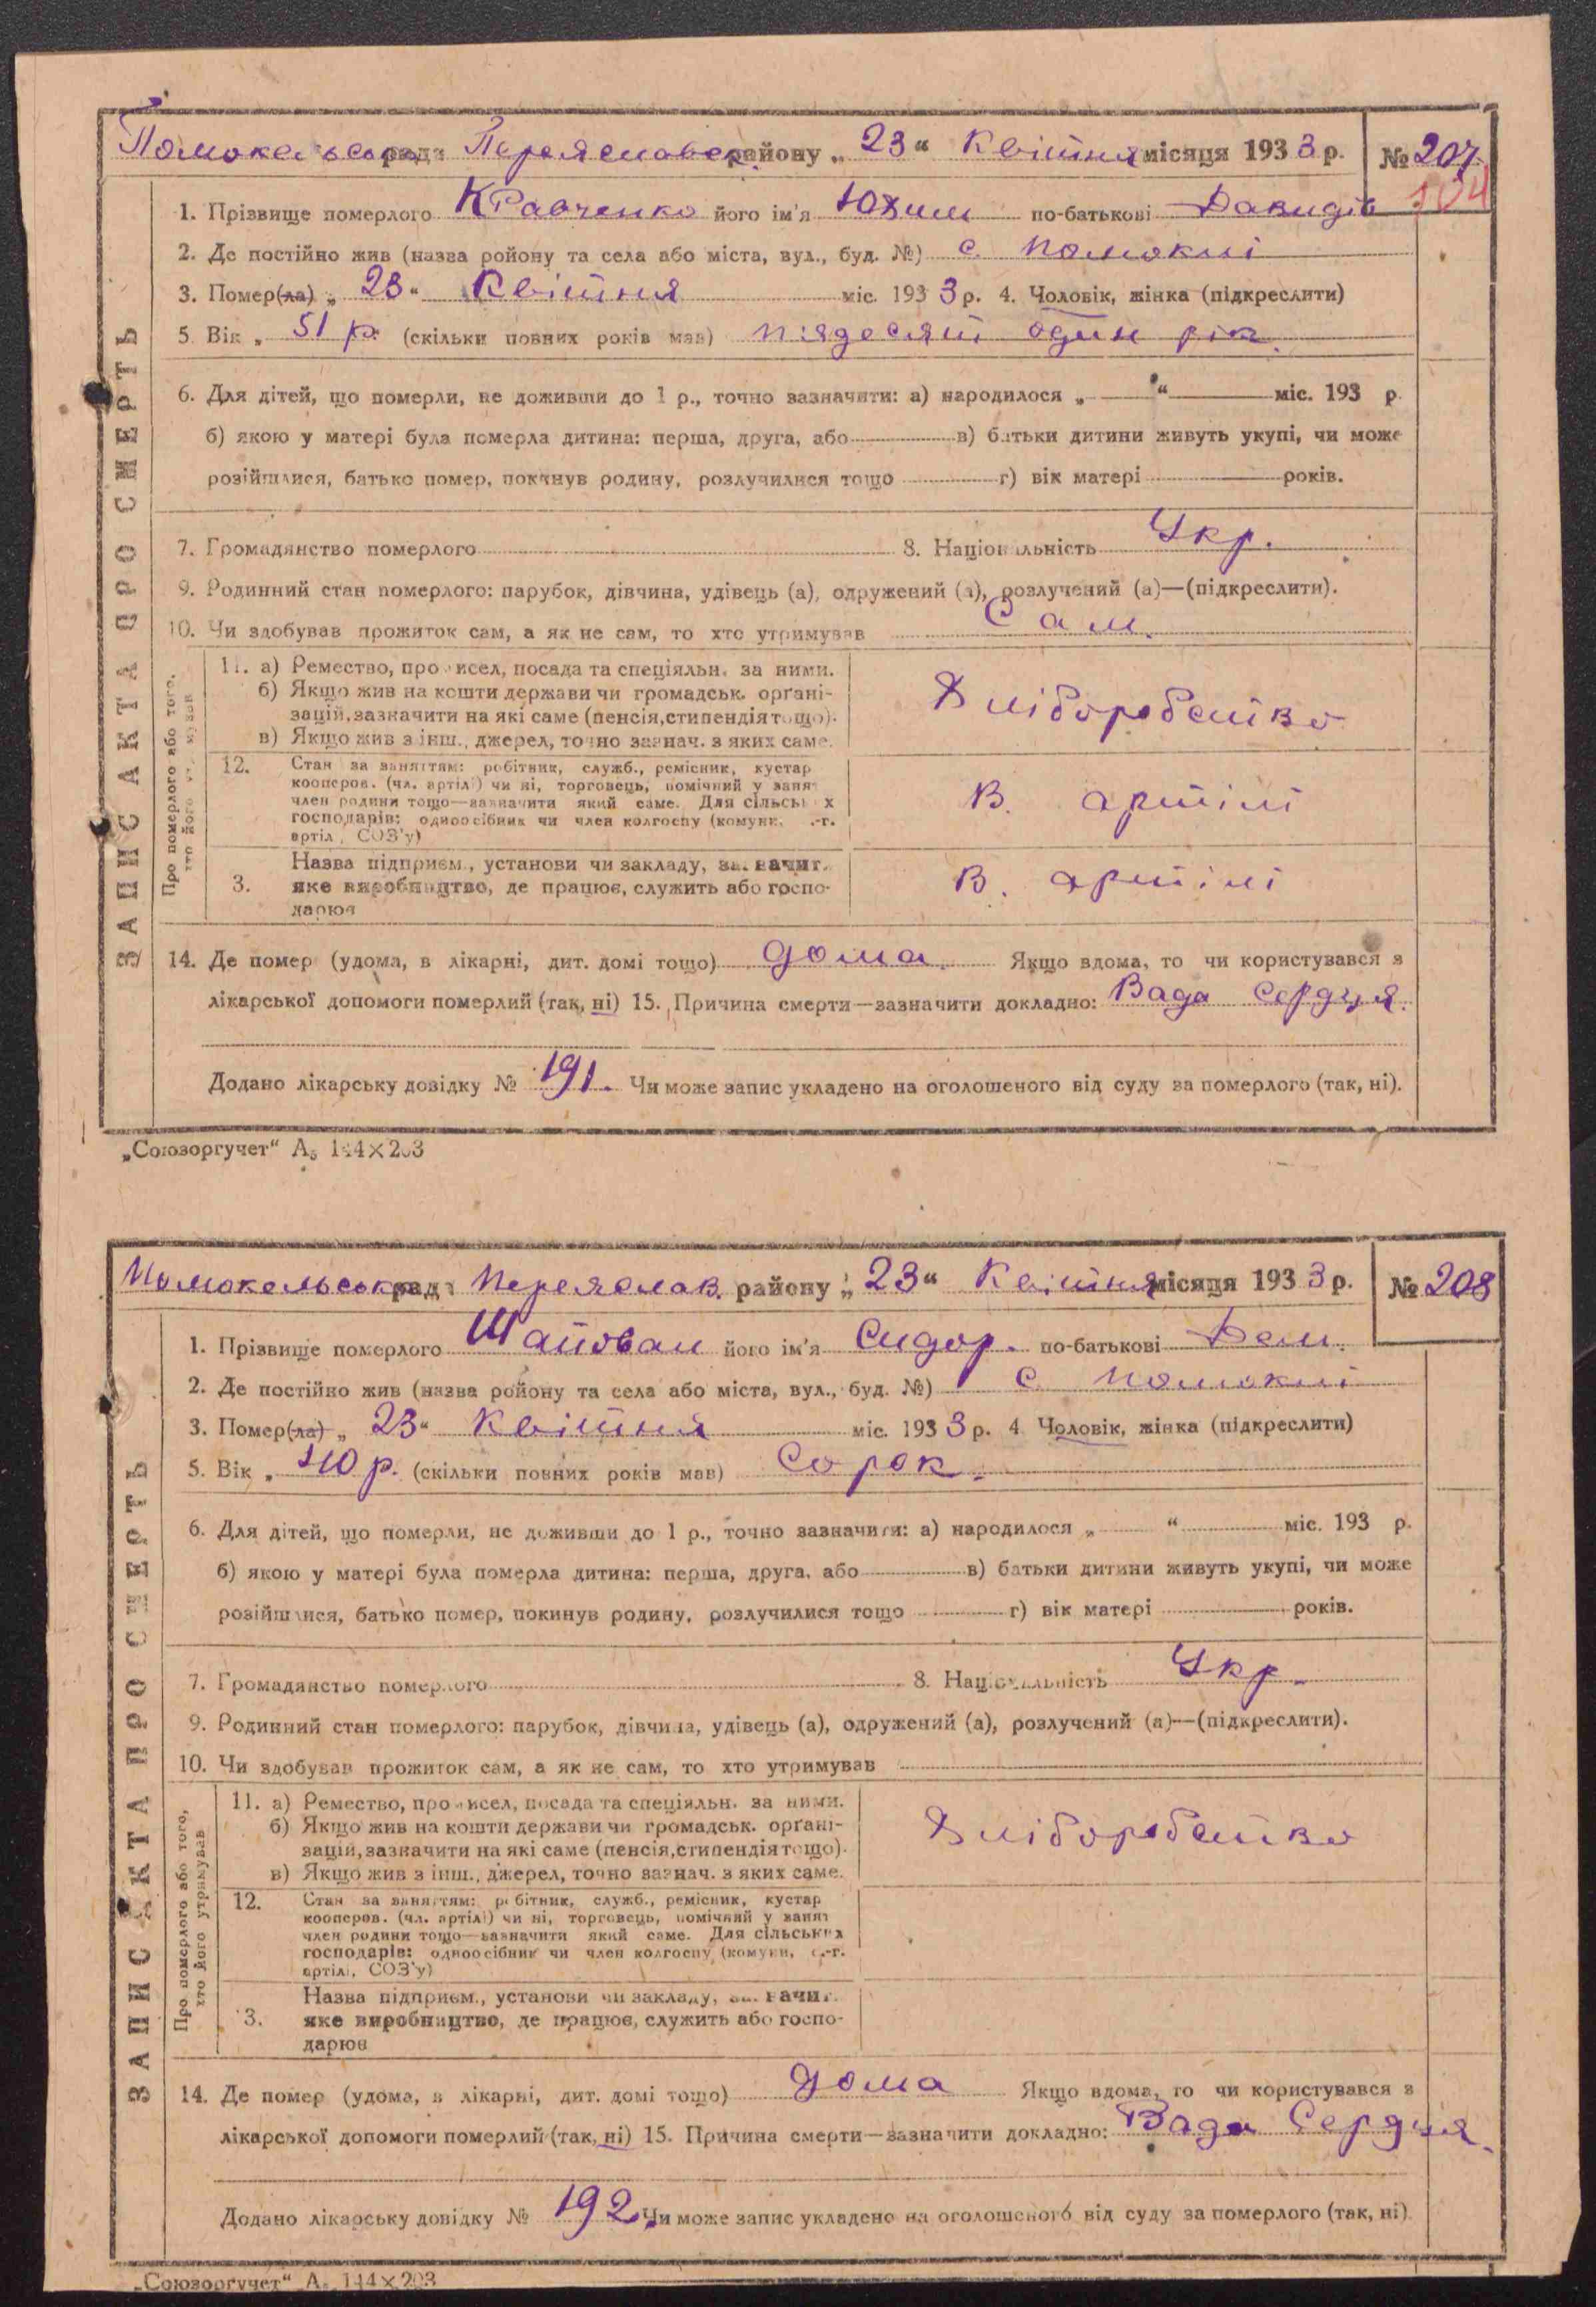 Помокельська рада Переяславськ. району „23“ Квітня місяця 1933 р. № 207.
104
1. Прізвище померлого Кравченко його ім'я Юхим по-батькові Давидів
2. Де постійно жив (назва ройону та села або міста, вул., буд. №) с. Помоклі
3. Помер(ла) „ 23 “ Квітня міс. 1933 р. 4. Чоловік, жінка (підкреслити)
5. Вік „ 51 р. (скільки повних років мав) пядесят один рік.
6. Для дітей, що померли, не доживши до 1 р., точно зазначити: а) народилося „ “ міс. 193 р.
б) якою у матері була померла дитина: перша, друга, або в) батьки дитини живуть укупі, чи може
розійшлися, батько помер, покинув родину, розлучилися тощо г) вік матері років.
7. Громадянство померлого 8. Національність Укр.
9. Родинний стан померлого: парубок, дівчина, удівець (а), одружений (а), розлучений (а)—(підкреслити).
10. Чи здобував прожиток сам, а як не сам, то хто утримував Сам.
11. а) Ремество, промисел, посада та спеціяльн. за ними.
б) Якщо жив на кошти держави чи громадськ. орґані-
зацій, зазначити на які саме (пенсія, стипендія тощо).
в) Якщо жив з інш., джерел, точно зазнач. з яких саме.
Хліборобство
12. Стан за заняттям: робітник, служб., ремісник, кустар
кооперов. (чл. артілі) чи ні, торговець, помічний у занят
член родини тощо—зазначити який саме. Для сільських
господарів: одноосібник чи член колгоспу (комуни, с.-г.
артілі, СОЗ'у)
В. артілі
3. Назва підприєм., установи чи закладу, зазначит.
яке виробництво, де працює, служить або госпо-
дарює
В. артілі
Про померлого або того,
хто його утримував
14. Де помер (удома, в лікарні, дит. домі тощо) дома. Якщо вдома, то чи користувався з
лікарської допомоги померлий (так, ні) 15. Причина смерти—зазначити докладно: Вада Серця.
Додано лікарську довідку № 191. Чи може запис укладено на оголошеного від суду за померлого (так, ні).
ЗАПИС АКТА ПРО СМЕРТЬ
„Союзоргучет“ А5 144×203
Помокельська рада Переяслав. району „23“ Квітня місяця 1933 р. № 208
1. Прізвище померлого Шаповал його ім'я Сидор. по-батькові Дем.
2. Де постійно жив (назва ройону та села або міста, вул., буд. №) с Помоклі
3. Помер(ла) „ 23 “ Квітня міс. 1933 р. 4 Чоловік, жінка (підкреслити)
5. Вік „ 40 р. (скільки повних років мав) Сорок.
6. Для дітей, що померли, не доживши до 1 р., точно зазначити: а) народилося „ “ міс. 193 р.
б) якою у матері була померла дитина: перша, друга, або в) батьки дитини живуть укупі, чи може
розійшлися, батько помер, покинув родину, розлучилися тощо г) вік матері років.
7. Громадянство померлого 8. Національність Укр.
9. Родинний стан померлого: парубок, дівчина, удівець (а), одружений (а), розлучений (а)—(підкреслити).
10. Чи здобував прожиток сам, а як не сам, то хто утримував
11. а) Ремество, промисел, посада та спеціяльн. за ними.
б) Якщо жив на кошти держави чи громадськ. орґані-
зацій, зазначити на які саме (пенсія, стипендія тощо).
в) Якщо жив з інш., джерел, точно зазнач. з яких саме.
Хліборобство
12. Стан за заняттям: робітник, служб., ремісник, кустар
кооперов. (чл. артілі) чи ні, торговець, помічний у занят
член родини тощо—зазначити який саме. Для сільських
господарів: одноосібник чи член колгоспу (комуни, с.-г.
артілі, СОЗ'у)
3. Назва підприєм., установи чи закладу, зазначит.
яке виробництво, де працює, служить або госпо-
дарює
Про померлого або того,
хто його утримував
14. Де помер (удома, в лікарні, дит. домі тощо) Дома Якщо вдома, то чи користувався з
лікарської допомоги померлий (так, ні) 15. Причина смерти—зазначити докладно: Вада Серця.
Додано лікарську довідку № 192. Чи може запис укладено на оголошеного від суду за померлого (так, ні).
ЗАПИС АКТА ПРО СМЕРТЬ
„Союзоргучет“ А5 144×203